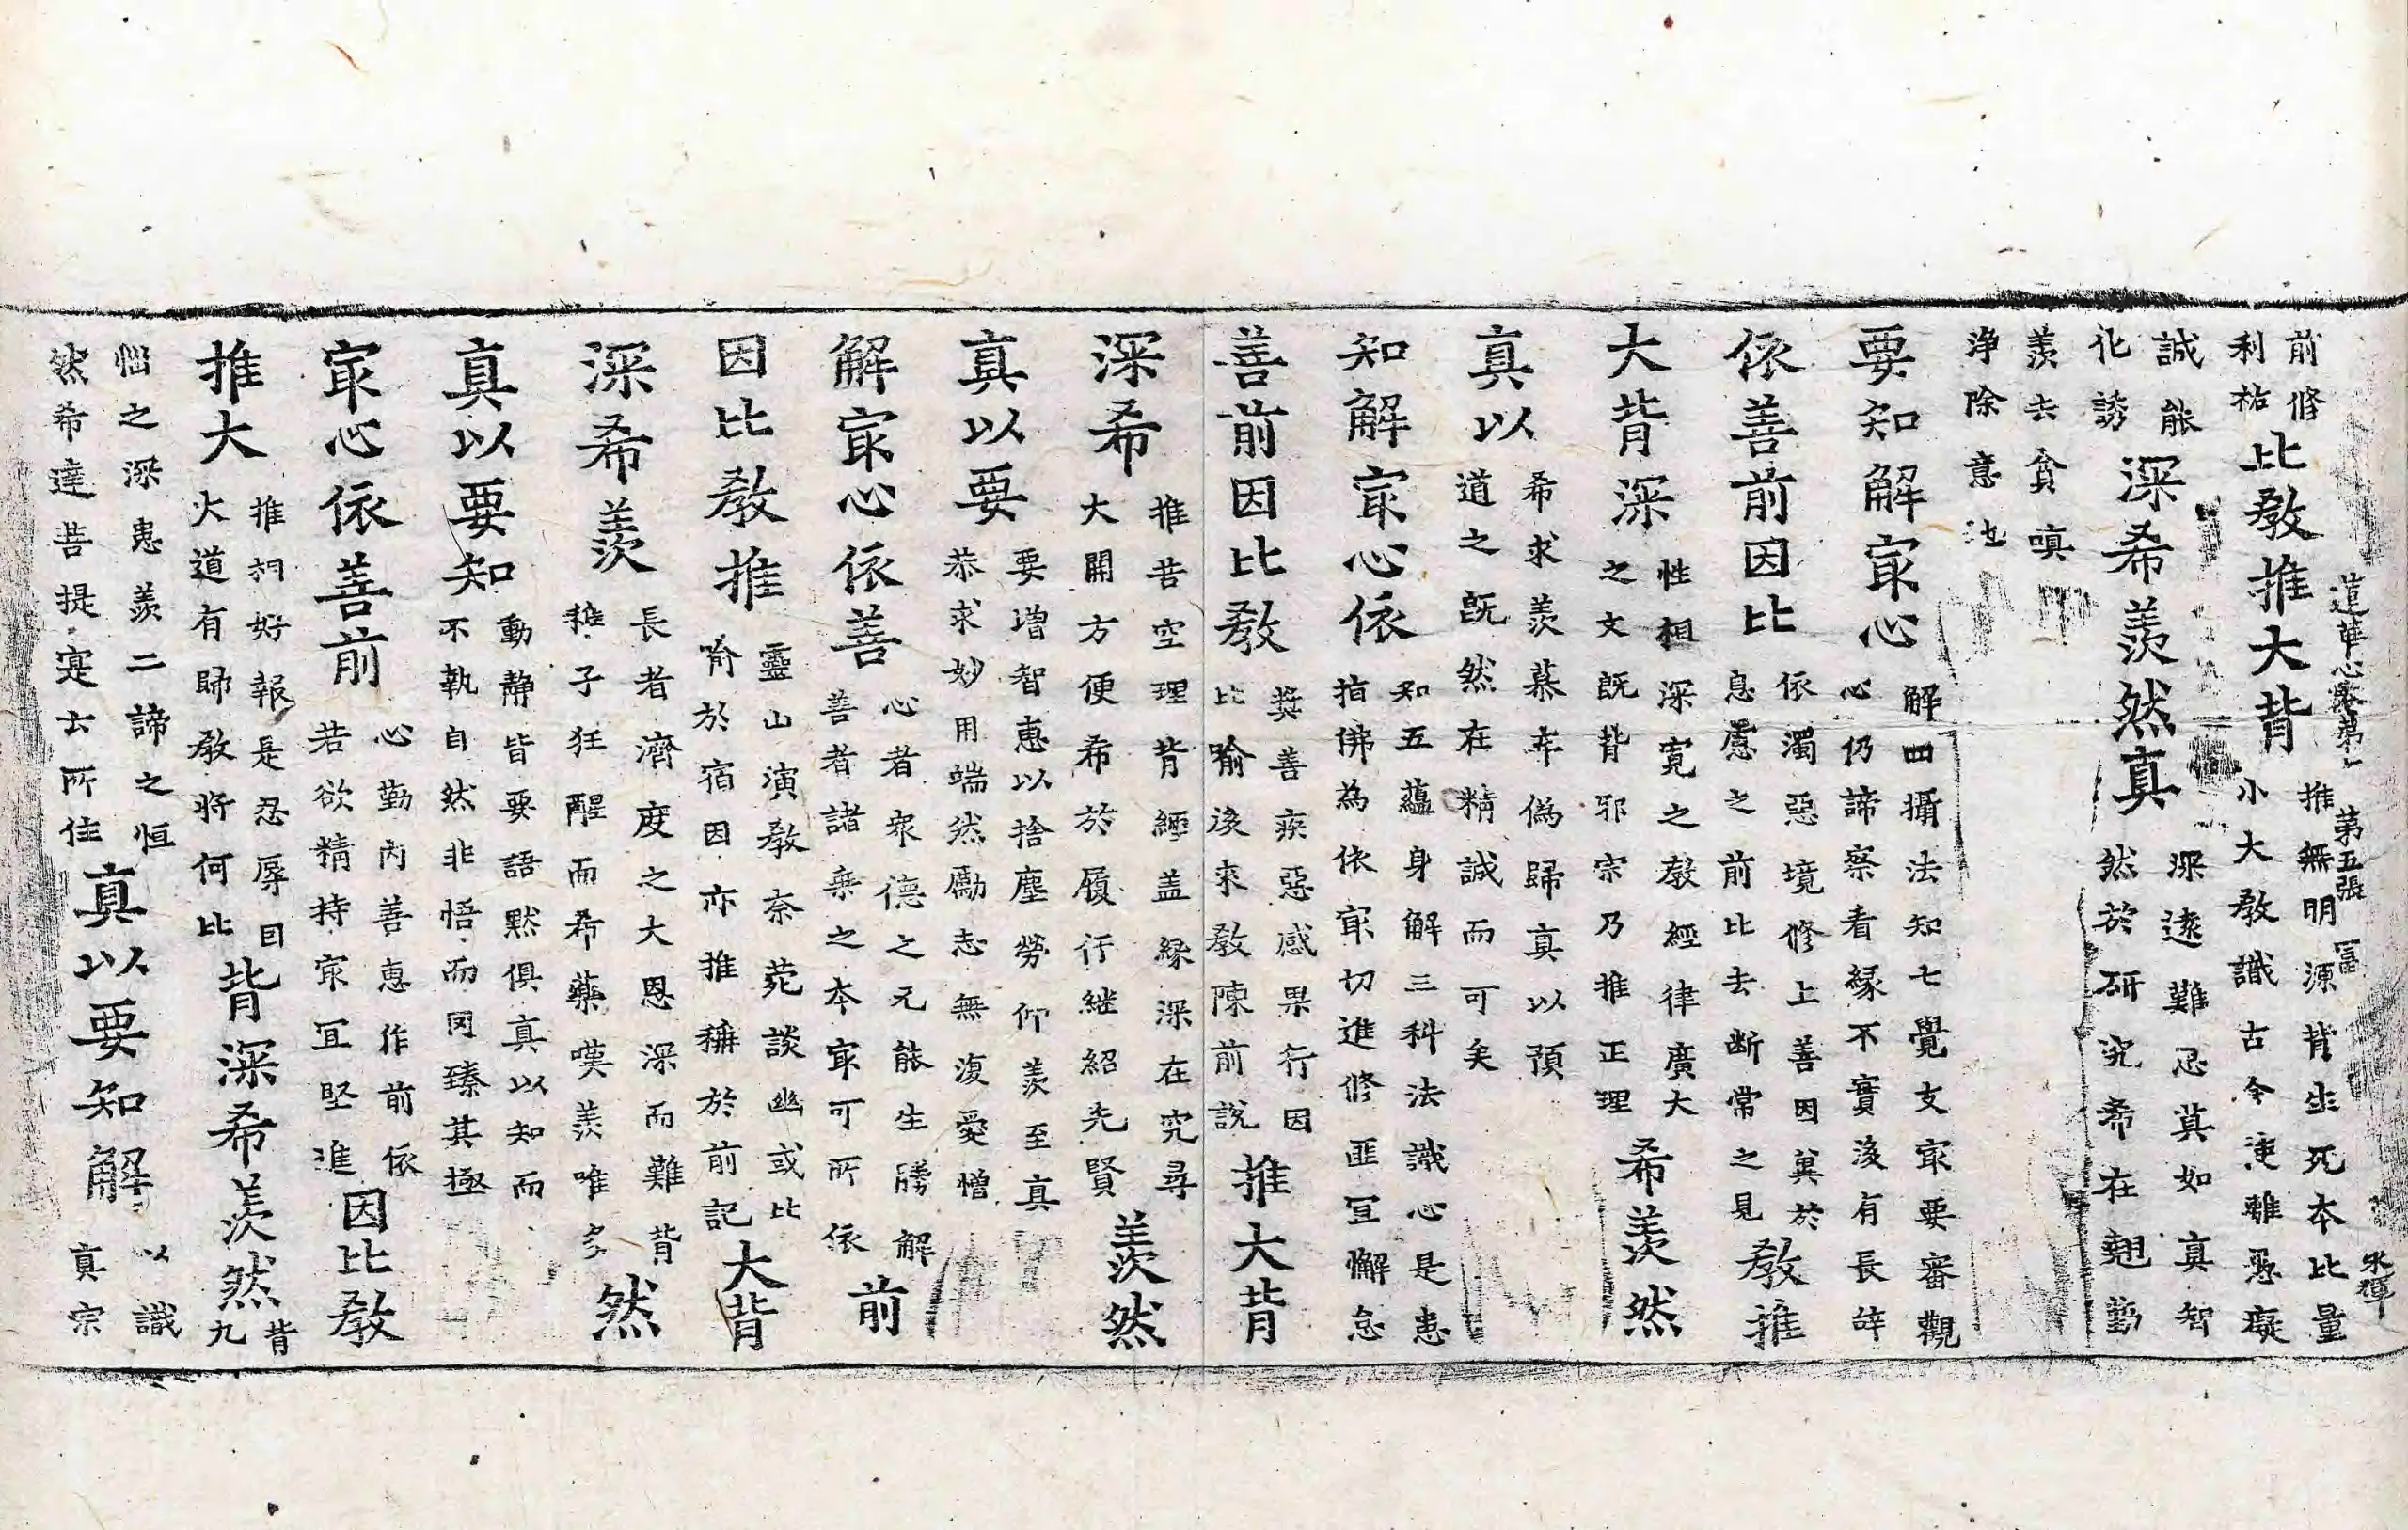 蓮華心卷第一 第五張 冨 永暉
前修
利祐
比教推大背
推無明源背生死本比量
小大教識古今達離愚癡
誠能
化誘
深希羨然真
深遠難忌莫如真智
然於研究希在翹勤
羨去貪嗔
淨除意池
要知解㝡心
解四攝法知七覺支㝡要審觀
心仍諦察看緣不實後有長辞
依善前因比
依濁惡境修上善因冀於
息慮之前比去断常之見
教推
大背深
性相深寛之教經律廣大
之文既背邪宗乃推正理
希羨然
真以
希求羨慕弃偽歸真以預
道之既然在精誠而可矣
知解㝡心依
知五蘊身解三科法識心是患
指佛為依㝡切進修匪宜懈怠
善前因比教
奬善疾惡感果行因
比喻後來教陳前説
推大背
深希
推苦空理背經盖緣深在究尋
大開方便希於履行継紹先賢
羨然
真以要
要增智惠以捨塵勞仰羨至真
恭求妙用端然勵志無復愛憎
解㝡心依善
心者衆德之元能生勝解
善者諸乘之本㝡可所依
前
因比教推
靈山演教奈菀談幽或比
喻於宿因亦推稱於前記
大背
深希羨
長者濟度之大恩深而難背
稚子狂醒而希藥嘆羨唯多
然
真以要知
動静皆要語默俱真以知而
不執自然非悟而罔臻其極
㝡心依善前
心勤内善惠作前依
若欲精持㝡宜堅進
因比教
推大
推祠好報是忍辱因
大道有歸教將何比
背深希羨然
背
九
惱之深患羨二諦之恒
然希達菩提寔去所住
真以要知解
以識
真宗